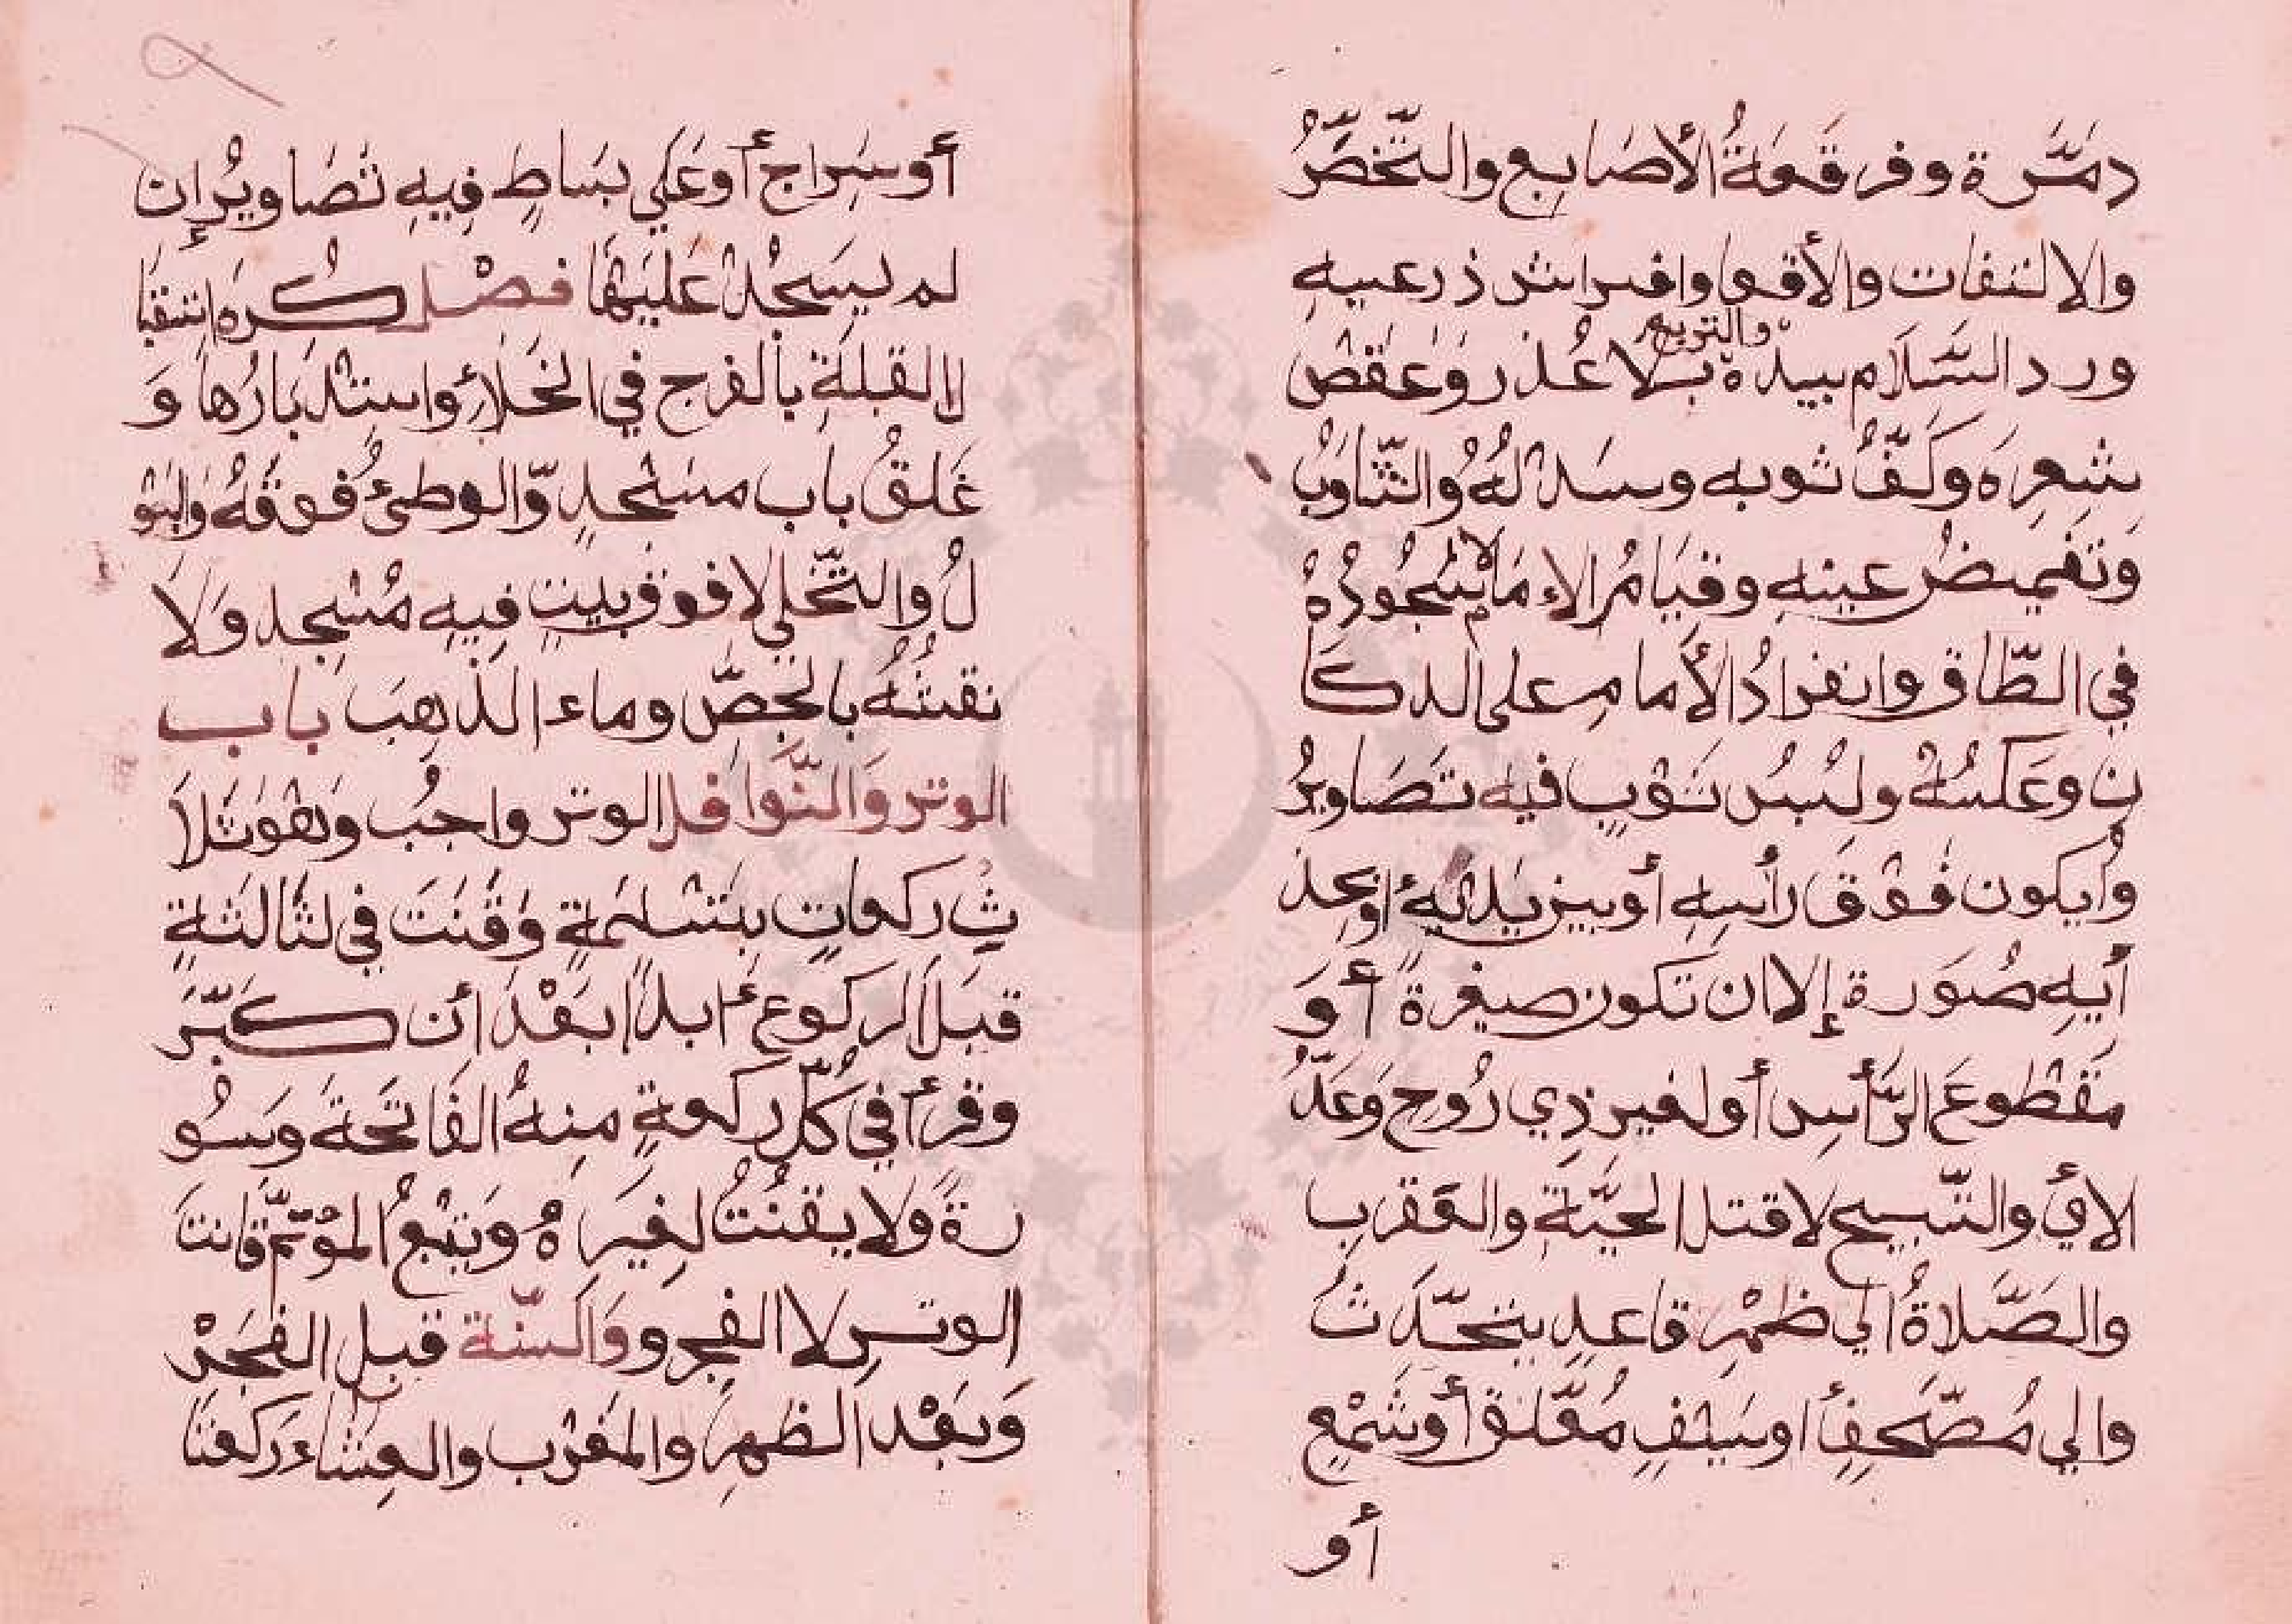 دمَرَّة وفرقَعَةُ الأصَابع والتَّخَصُّرُ
والالتفات والأقعا وافتراش ذرعيه
ورد السَّلَام بيده والتربع بلا عُذر وَعَقْصُ
شعرِه وكَفُّ ثوبه وسَدْلهُ والتَّثَاوبُ
وَتغميضُ عينيه وقيَامُ الاءمَام لاسُجُودُهُ
في الطَّاق وانفرَادُ الأمامِ على الدكا
ن وعَكسُهُ ولبْسُ ثَوْبٍ فيه تصَاويرُ
وأيكون فَوْق رأسِهِ أوبين يَدَيْهِ اوبحذ
أيهِ صُوَرة إلا ان تكون صغيرةً أو
مَقْطوعَ الرَّأسِ أو لغير ذِي رُوحٍ وَعَدُّ
الايِ والتَّسبيح لا قتل الحيَّةِ والعَقرب
والصَّلاةُ الي ظهْرِ قاعدٍ يتحَدَّثُ
والي مُصْحَفٍ أوسَيْفٍ مُعَلَّقٍ أوشَمْعٍ
أو
أوسِرَاج أوعَلَي بسَاطٍ فِيهِ تصَاويرُ إن
لم يسَجُدْ عَلَيْهَا فصْل كُره استقبا
لا القبلةِ بالفرج في الخَلَاءِ واستدْبَارُهَا وَ
غَلقُ باب مسْجدٍ وَّالوطئُ فوقَهُ والبَوْ
لُ والتَّخَلي لا فوق بيتٍ فِيهِ مسْجِد وَلَا
نقشُهُ بالجَصِّ وماء الذَهَب باب
الوتر وَالنَّوافل الوتر واجبُ وَهْوَ ثَلَا
ثِ ركعاتٍ بتَسْليمَةٍ وَقَنَتَ في لثَّالثةِ
قبلَ الركوع أبدًا بَعْدَ أن كَبَّرَ
وقرأ في كُلِّ ركعةٍ منهُ الفَاتحَةَ وَسُو
رةً وَلا يقنُتُ لغَيرِهْ وَيتبْعُ المؤْتمّ قَانتَ
الوتر لا الفجر و وَالسنّة قبل الفَجرْ
وَبَعْد الظهر والمغْرب والعِشَاء رَكعتا